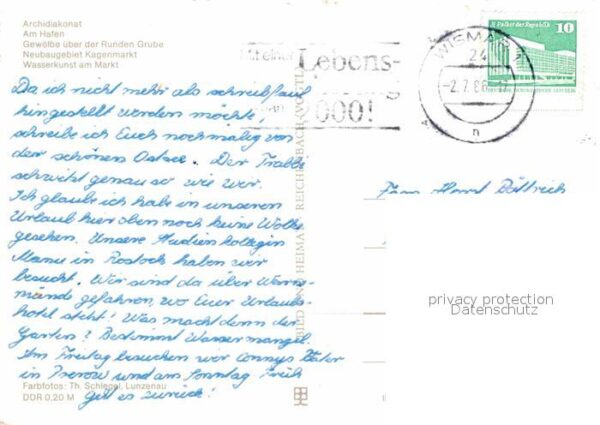 Archidiakonat
Am Hafen
Gewölbe über der Runden Grube
Neubaugebiet Kagenmarkt
Wasserkunst am Markt
Da ich nicht mehr als schreibfaul
hingestellt werden möchte,
schreibe ich Euch nochmalig von
der schönen Ostsee. Der Trabbi
schwitzt genau so wie wir.
Ich glaube ich habe in unseren
Urlaub hier oben noch keine Wolke
gesehen. Unsere Studienkollegin
Manu in Rostock haben wir
besucht. Wir sind da über Warne-
münde gefahren, wo Euer Urlaubs-
hotel steht! Was macht denn der
Garten? Bestimmt Wassermangel.
Am Freitag besuchen wir Connys Väter
in Prerow und am Sonntag Früh
geht es zurück!
Farbfotos: Th. Schlegel, Lunzenau
DDR 0,20 M
BILD UND HEIMAT REICHENBACH (VOGTL)
einer
Lebens-
000!
WISMAR 1
24
-2.7.86-17
n
Palast der Republik
10
Horst
privacy protection
Datenschutz